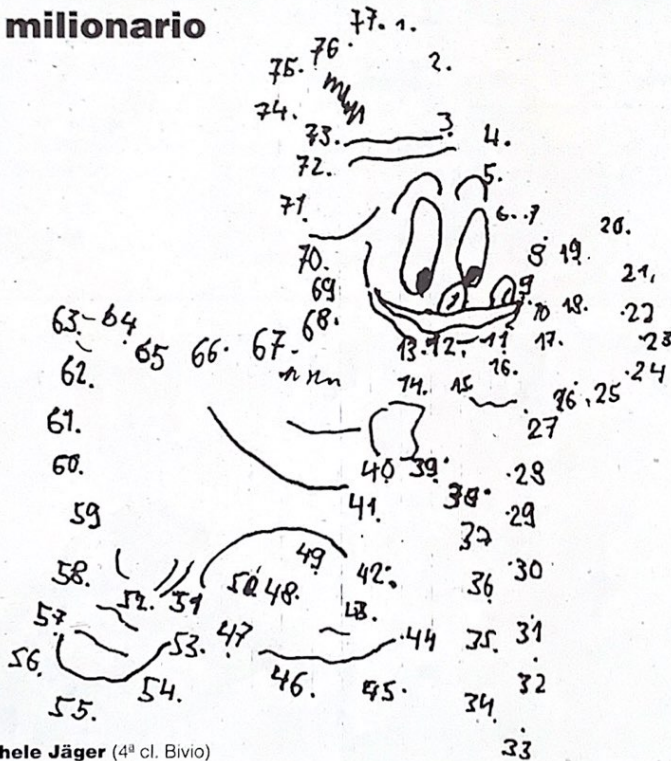 milionario
77. 1.
76. 2.
75.
74. 3. 4.
73.
72. 5.
71. 6. 7
20.
70. 8 19.
69 9 21.
68. 10 18. 22
63. 64 65 66. 67. 13. 12. 11 17. 23
62. 14. 15 16. 24
26. 25
61. 27
60. 40 39. 28
59 41. 38. 29
37
58. 49 42. 36 30
52. 51 50 48. 43.
57 53. 47 44 35. 31
56. 54. 46. 45. 32
55. 34.
33
hele Jäger (4ª cl. Bivio)